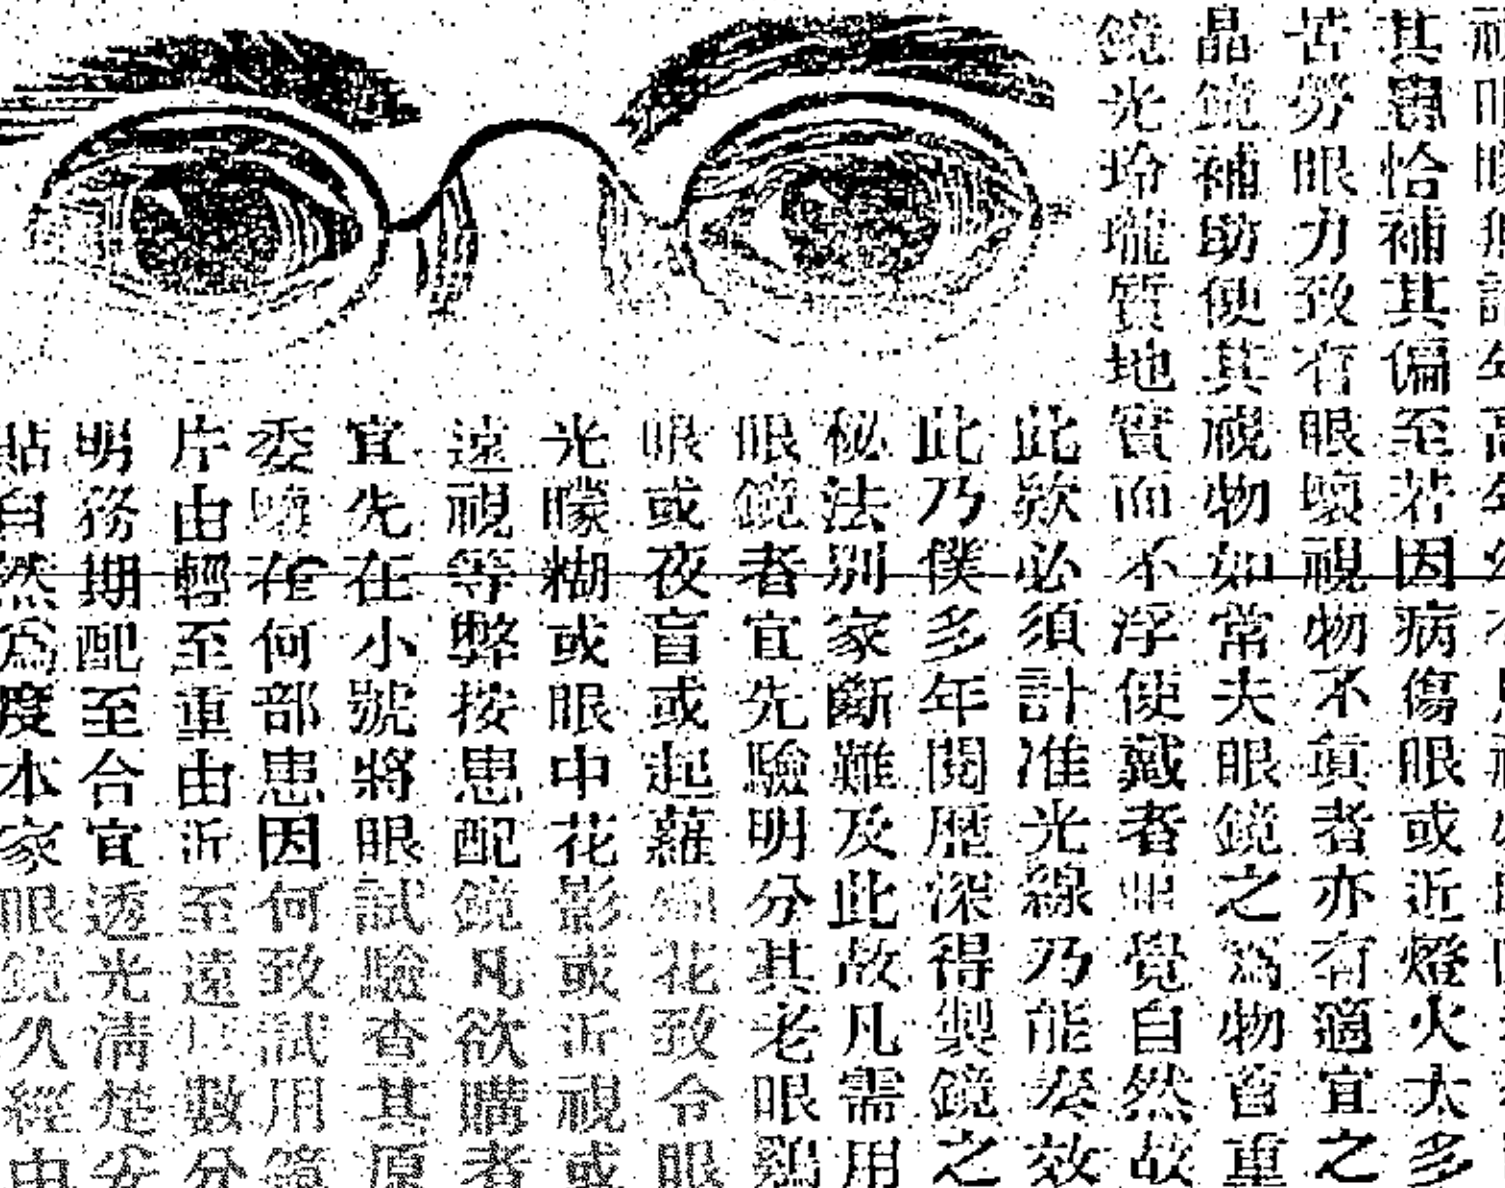 其患恰補其偏至若因病傷眼或近燈火太多
苦勞眼力致有眼壞視物不眞者亦有適宜之
晶鏡補助使其視物如常夫眼鏡之爲物首重
鏡光玲瓏質地實而不浮使戴者覺自然故
此欵必須計准光線乃能奏效
此乃僕多年閱歷深得製鏡之
秘法別家斷難及此故凡需用
眼鏡者宜先驗明分其老眼鷄
眼或夜盲或起蘿花致令眼
光矇糊或眼中花影或近視或
遠視等弊按患配鏡凡欲購者
宜先在小號將眼試驗查其原
委壞在何部患因何致試用鏡
片由輕至重由近至遠數分
明務期配至合宜透光清楚安
貼自然爲度本家眼鏡久經由